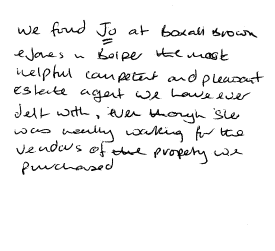 We found Jo at Boxall Brown
& Jones in Belper the most
helpful competent and pleasant
estate agent we have ever
delt with, even though she
was really working for the
vendors of the property we
purchased